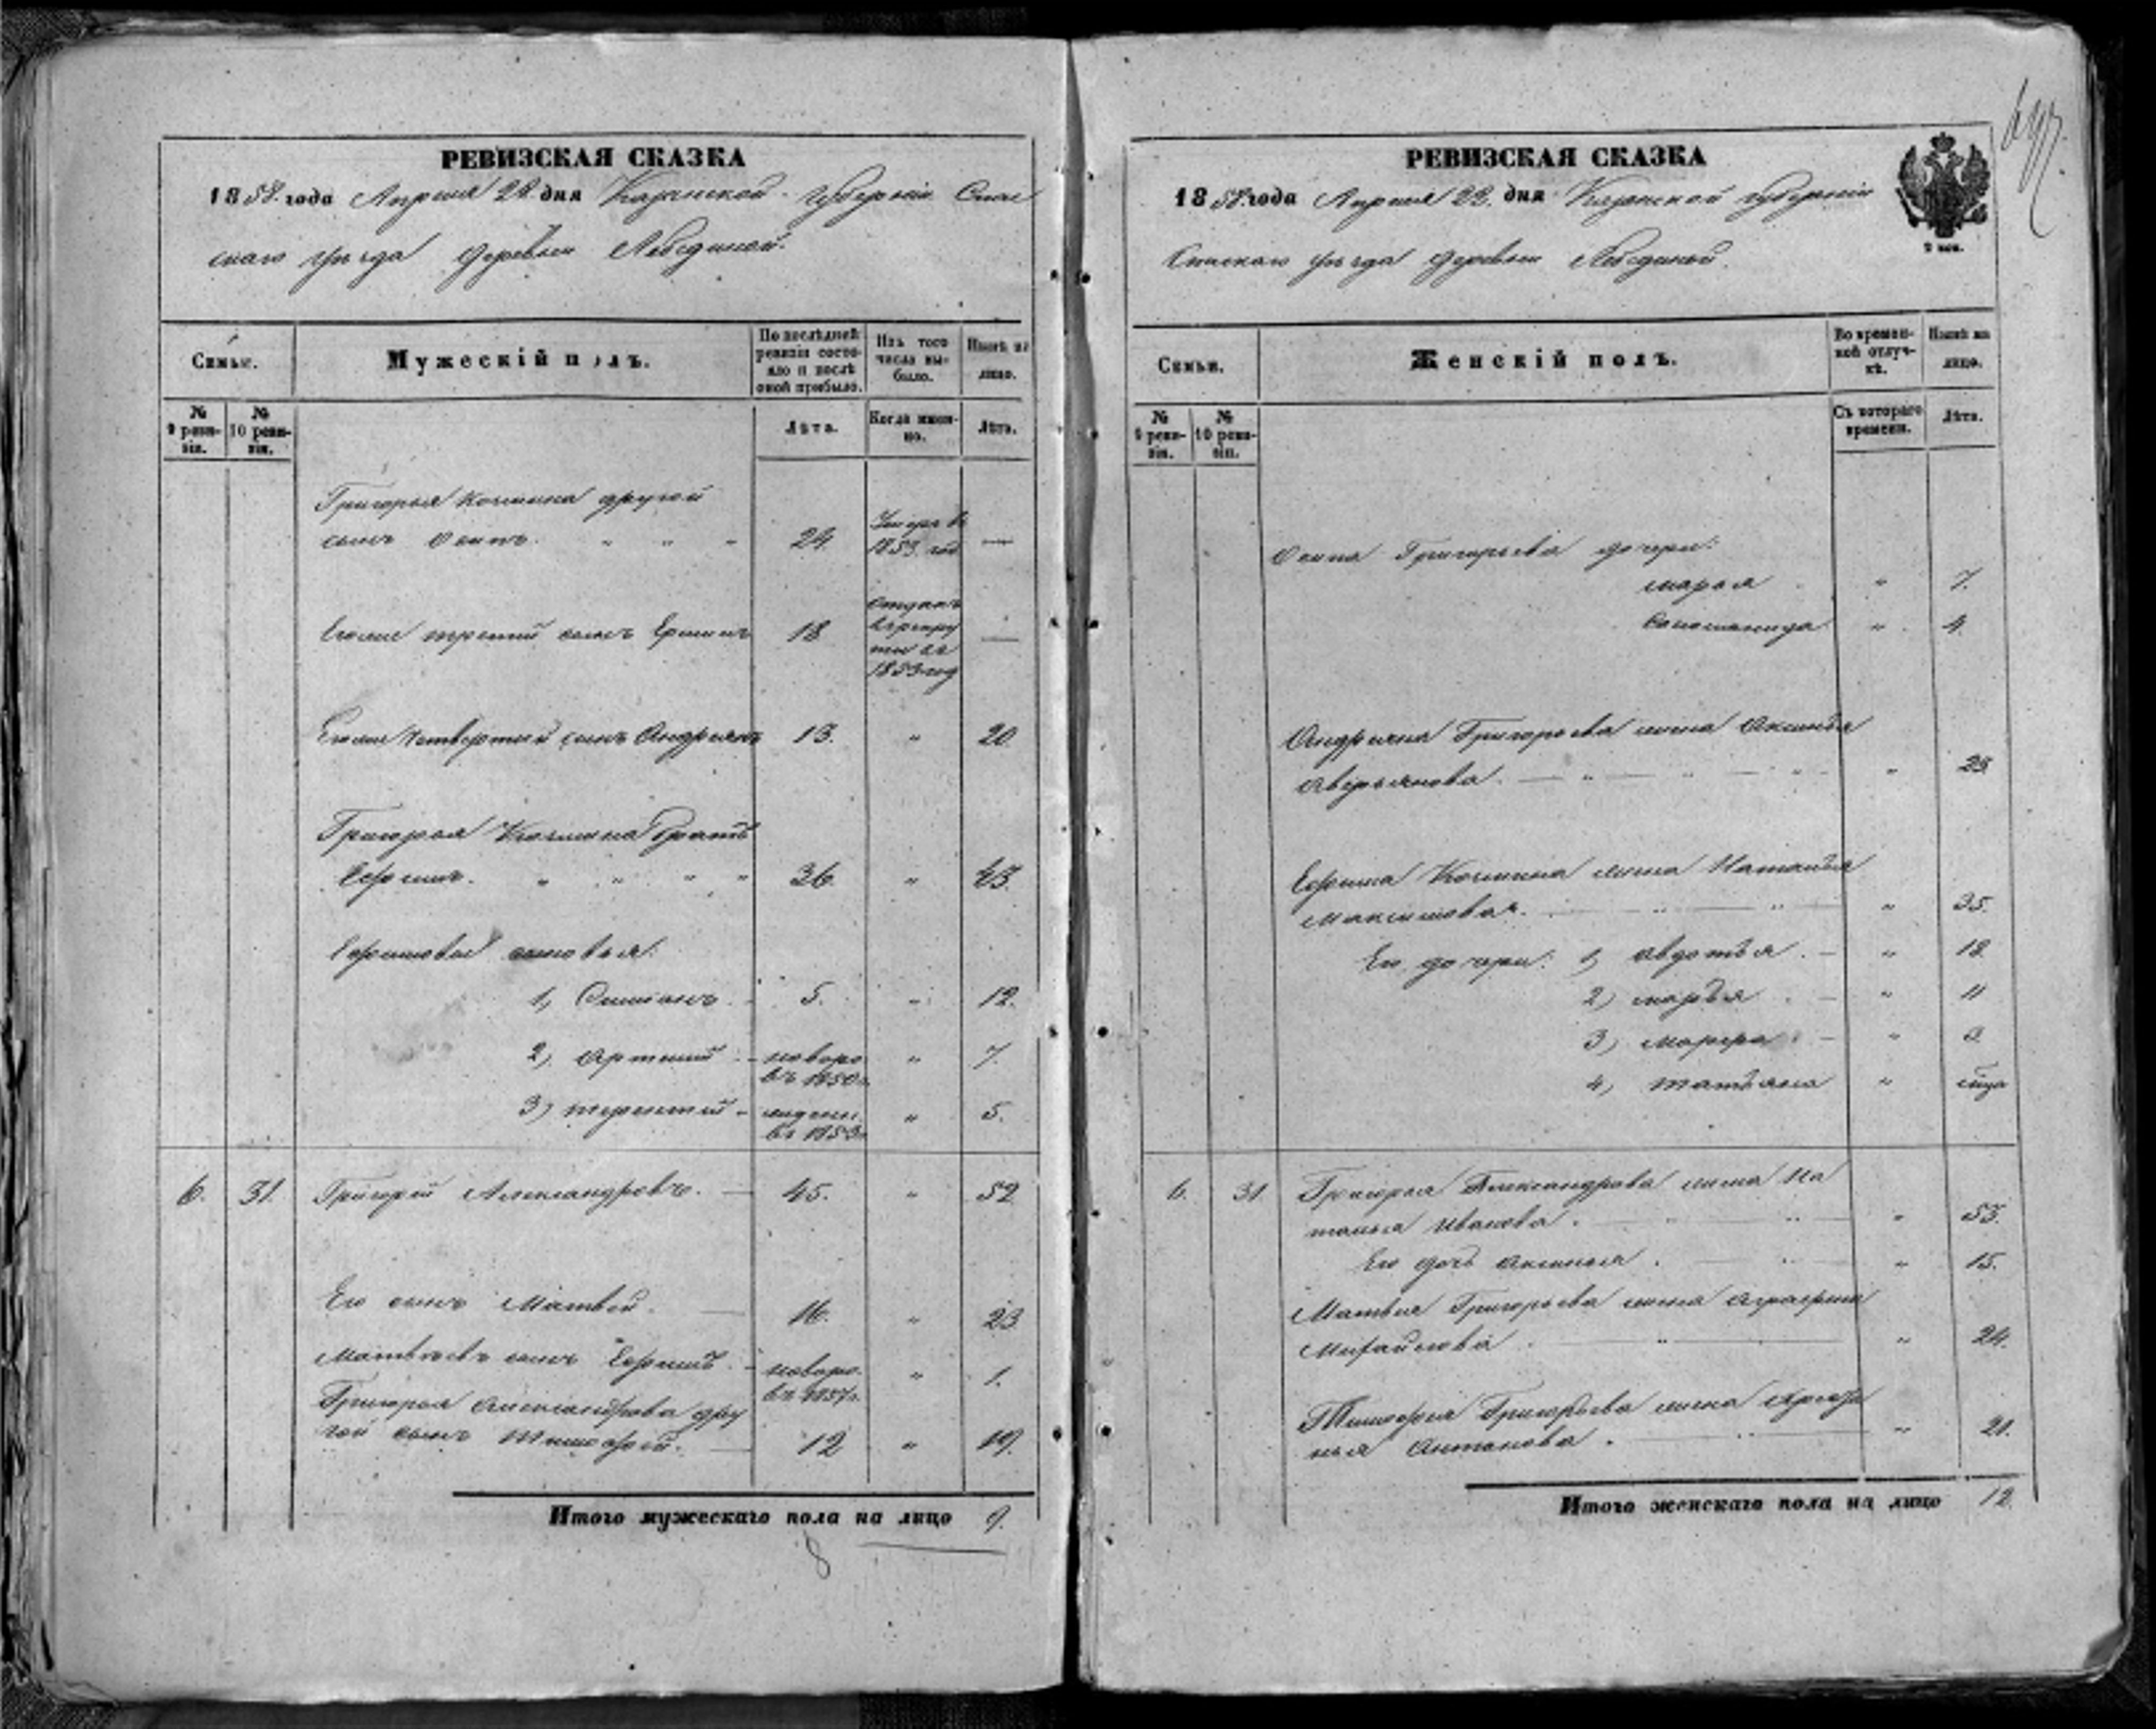 РЕВИЗСКАЯ СКАЗКА
1858 года Апреля 22 дня Казанской губернiи Спас
скаго уѣзда деревни Лебединой.
Семьи.
Мужескiй полъ.
По послѣдней ревизiи состояло и послѣ оной прибыло.
Изъ того числа выбыло.
Нынѣ на лицо.
№ 9 ревизiи.
№ 10 ревизiи.
Лѣта.
Когда именно.
Лѣта.
Григорья Козмина другой
сынъ Осипъ. " " " 24 Умеръ въ 1853 год —
Егоже третiй сынъ 18 Отданъ въ рекруты въ 1853 год —
Егоже четвертый сынъ Андреянъ 13. " 20
Григорья Козмина братъ
Ефремъ. " " " " 36. " 43.
Ефремовы сыновья:
1, Симионъ. - 5. " 12.
2, Артемiй - новоро въ 1850 г. " 7.
3) терентiй - въ 1853 г. " 5.
6. 31. Григорiй Александровъ. — 45. " 52
Его сынъ Матвей. — 16. " 23
Матвѣевъ сынъ Ефремъ - новоро. въ 1857 г. " 1.
Григорья Александрова дру
гой сынъ Тимофей. — 12 " 19.
Итого мужескаго пола на лицо 9.
8
РЕВИЗСКАЯ СКАЗКА
1858 года Апреля 22 дня Казанской губернiи
Спаскаго уѣзда деревни Лебединой.
2 коп.
Семьи.
Женскiй полъ.
Во временной отлучкѣ.
Нынѣ на лицо.
№ 9 ревизiи.
№ 10 ревизiи.
Съ котораго времени.
Лѣта.
Осипа Григорьева дочери:
марья " 7.
" 4.
Андреяна Григорьева жена Аксинья
Аверьянова. — " — " — " — " 23
Ефрема Козмина жена Наталья
Максимова. " 35.
Его дочери: 1, авдотья. — " 18.
2) марья. — " 11
3) марфа — "
4, татьяна "
6. 31 Григорья Александрова жена На
талья Иванова. " 53.
Его дочь аксинья. " 15.
Матвея Григорьева жена аграфена
Михайлова. " 24.
Тимофея Григорьева жена
Антонова. " 21.
Итого женскаго пола на лицо 12.